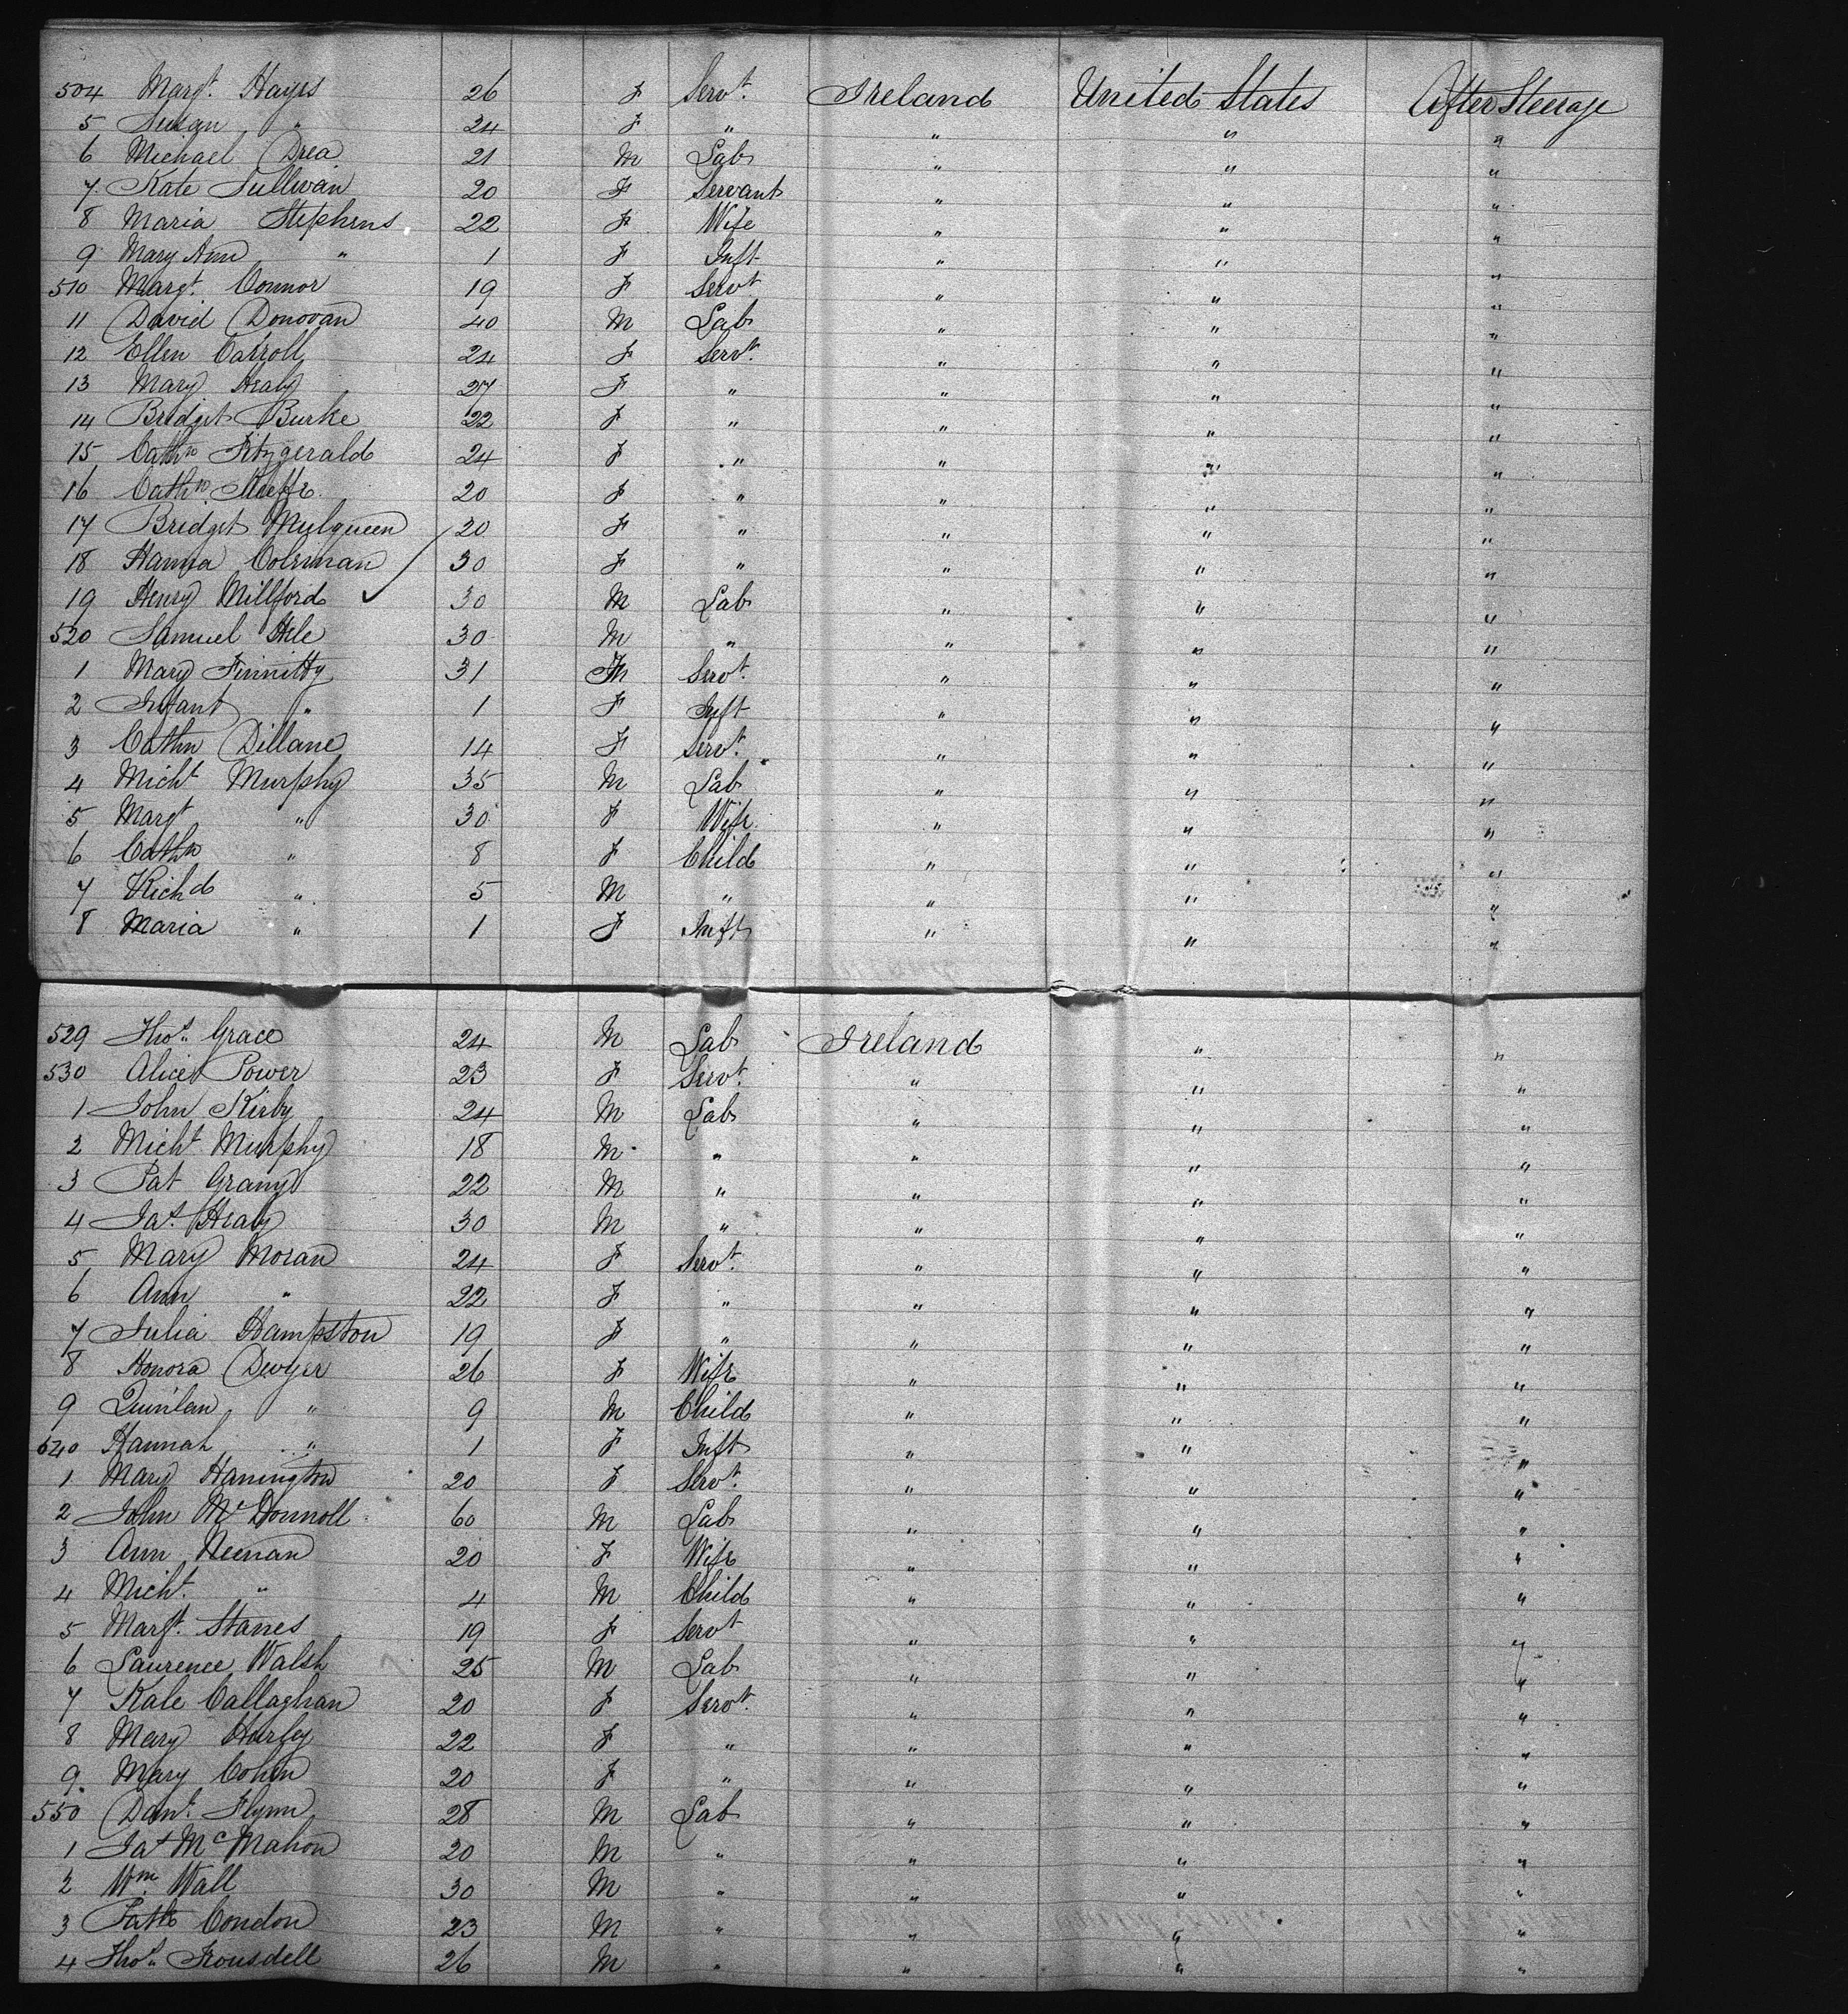 504 Margt. Hayes 26 F Servt. Ireland United States After Steerage
5 Susan " 24 F " " " "
6 Michael Drea 21 M Lab " " "
7 Kate Sullivan 20 F Servant " " "
8 Maria Stephens 22 F Wife " " "
9 Mary Ann " 1 F Inft " " "
510 Margt. Connor 19 F Servt " " "
11 David Donovan 40 M Lab " " "
12 Ellen Carroll 24 F Servt. " " "
13 Mary Healy 27 F " " " "
14 Bridget Burke 22 F " " " "
15 Cathn Fitzgerald 24 F " " " "
16 Cathn. Keeffe 20 F " " " "
17 Bridget Mulqueen 20 F " " " "
18 Hanna Coleman 30 F " " " "
19 Henry Millford 30 M Lab " " "
520 Samuel Hele 30 M " " " "
1 Mary Finnitty 31 Servt. " " "
2 Infant " 1 F Inft " " "
3 Cathn Dillane 14 F Servt. " " "
4 Michl Murphy 35 M Lab " " "
5 Margt " 30 F Wife " " "
6 Cathn " 8 F Child " " "
7 Richd " 5 M " " " "
8 Maria " 1 F Inft " " "
529 Thos. Grace 24 M Lab Ireland " "
530 Alice Power 23 F Servt. " " "
1 John Kirby 24 M Lab " " "
2 Michl Murphy 18 M " " " "
3 Pat 22 M " " " "
4 Jas. Healy 30 M " " " "
5 Mary Moran 24 F Servt. " " "
6 Ann " 22 F " " " "
7 Julia Hampston 19 F " " " "
8 Honora Dwyer 26 F Wife " " "
9 Quinlan " 9 M Child " " "
640 Hannah " 1 F Inft " " "
1 Mary Hanington 20 F Servt. " " "
2 John McDonnoll 60 M Lab " " "
3 Ann Neenan 20 F Wife " " "
4 Michl. " 4 M Child " " "
5 Margt. Stanes 19 F Servt " " "
6 Laurence Walsh 25 M Lab " " "
7 Kate Callaghan 20 F Servt. " " "
8 Mary Hurley 22 F " " " "
9 Mary 20 F " " " "
550 Danl. Flynn 28 M Lab " " "
1 Jas McMahon 20 M " " " "
2 Wm. Wall 30 M " " " "
3 Patk Condon 23 M " " " "
4 Thos. 26 M " " " "